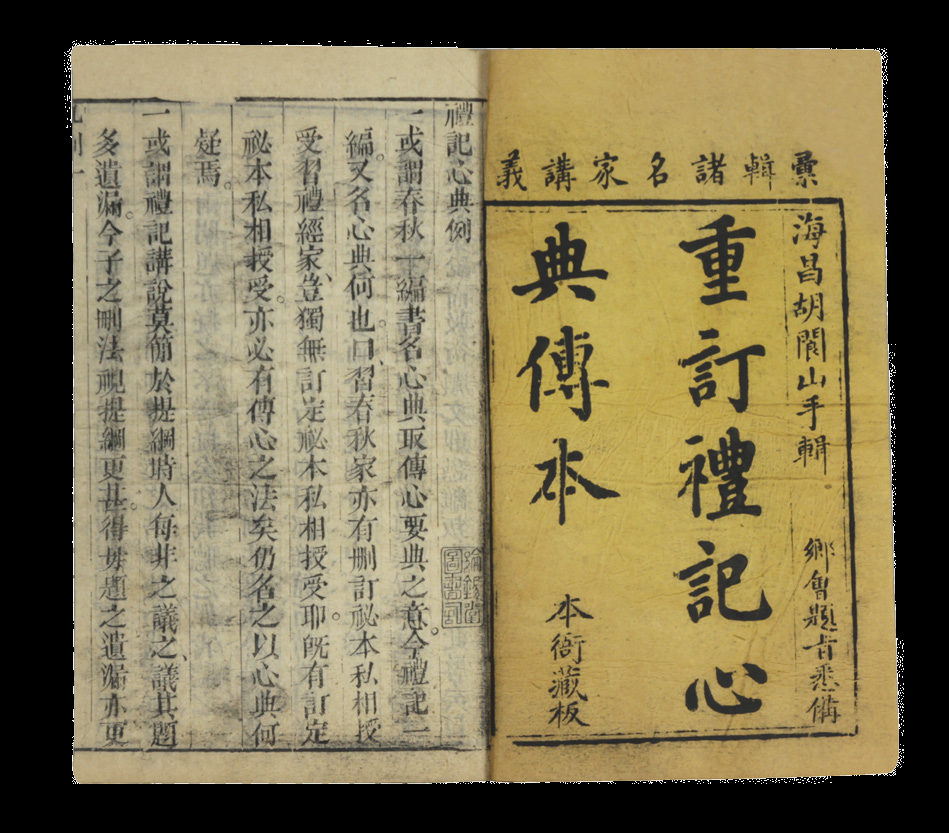 彙輯諸名家講義
海昌胡閬山手輯 鄉會題旨悉備
重訂禮記心
典傳本
本衙藏板
禮記心典例
一或謂春秋一編書名心典取傳心要典之意。今禮記一
編。又名心典何也。曰、習春秋家亦有刪訂祕本私相授
受。習禮經家、豈獨無訂定祕本私相授受耶。旣有訂定
祕本私相授受。亦必有傳心之法矣仍名之以心典何
疑焉。
一或謂禮記講說莫節於提綱時人每非之議之、議其題
多遺漏。今子之刪法視提綱更甚。得毋題之遺漏亦更